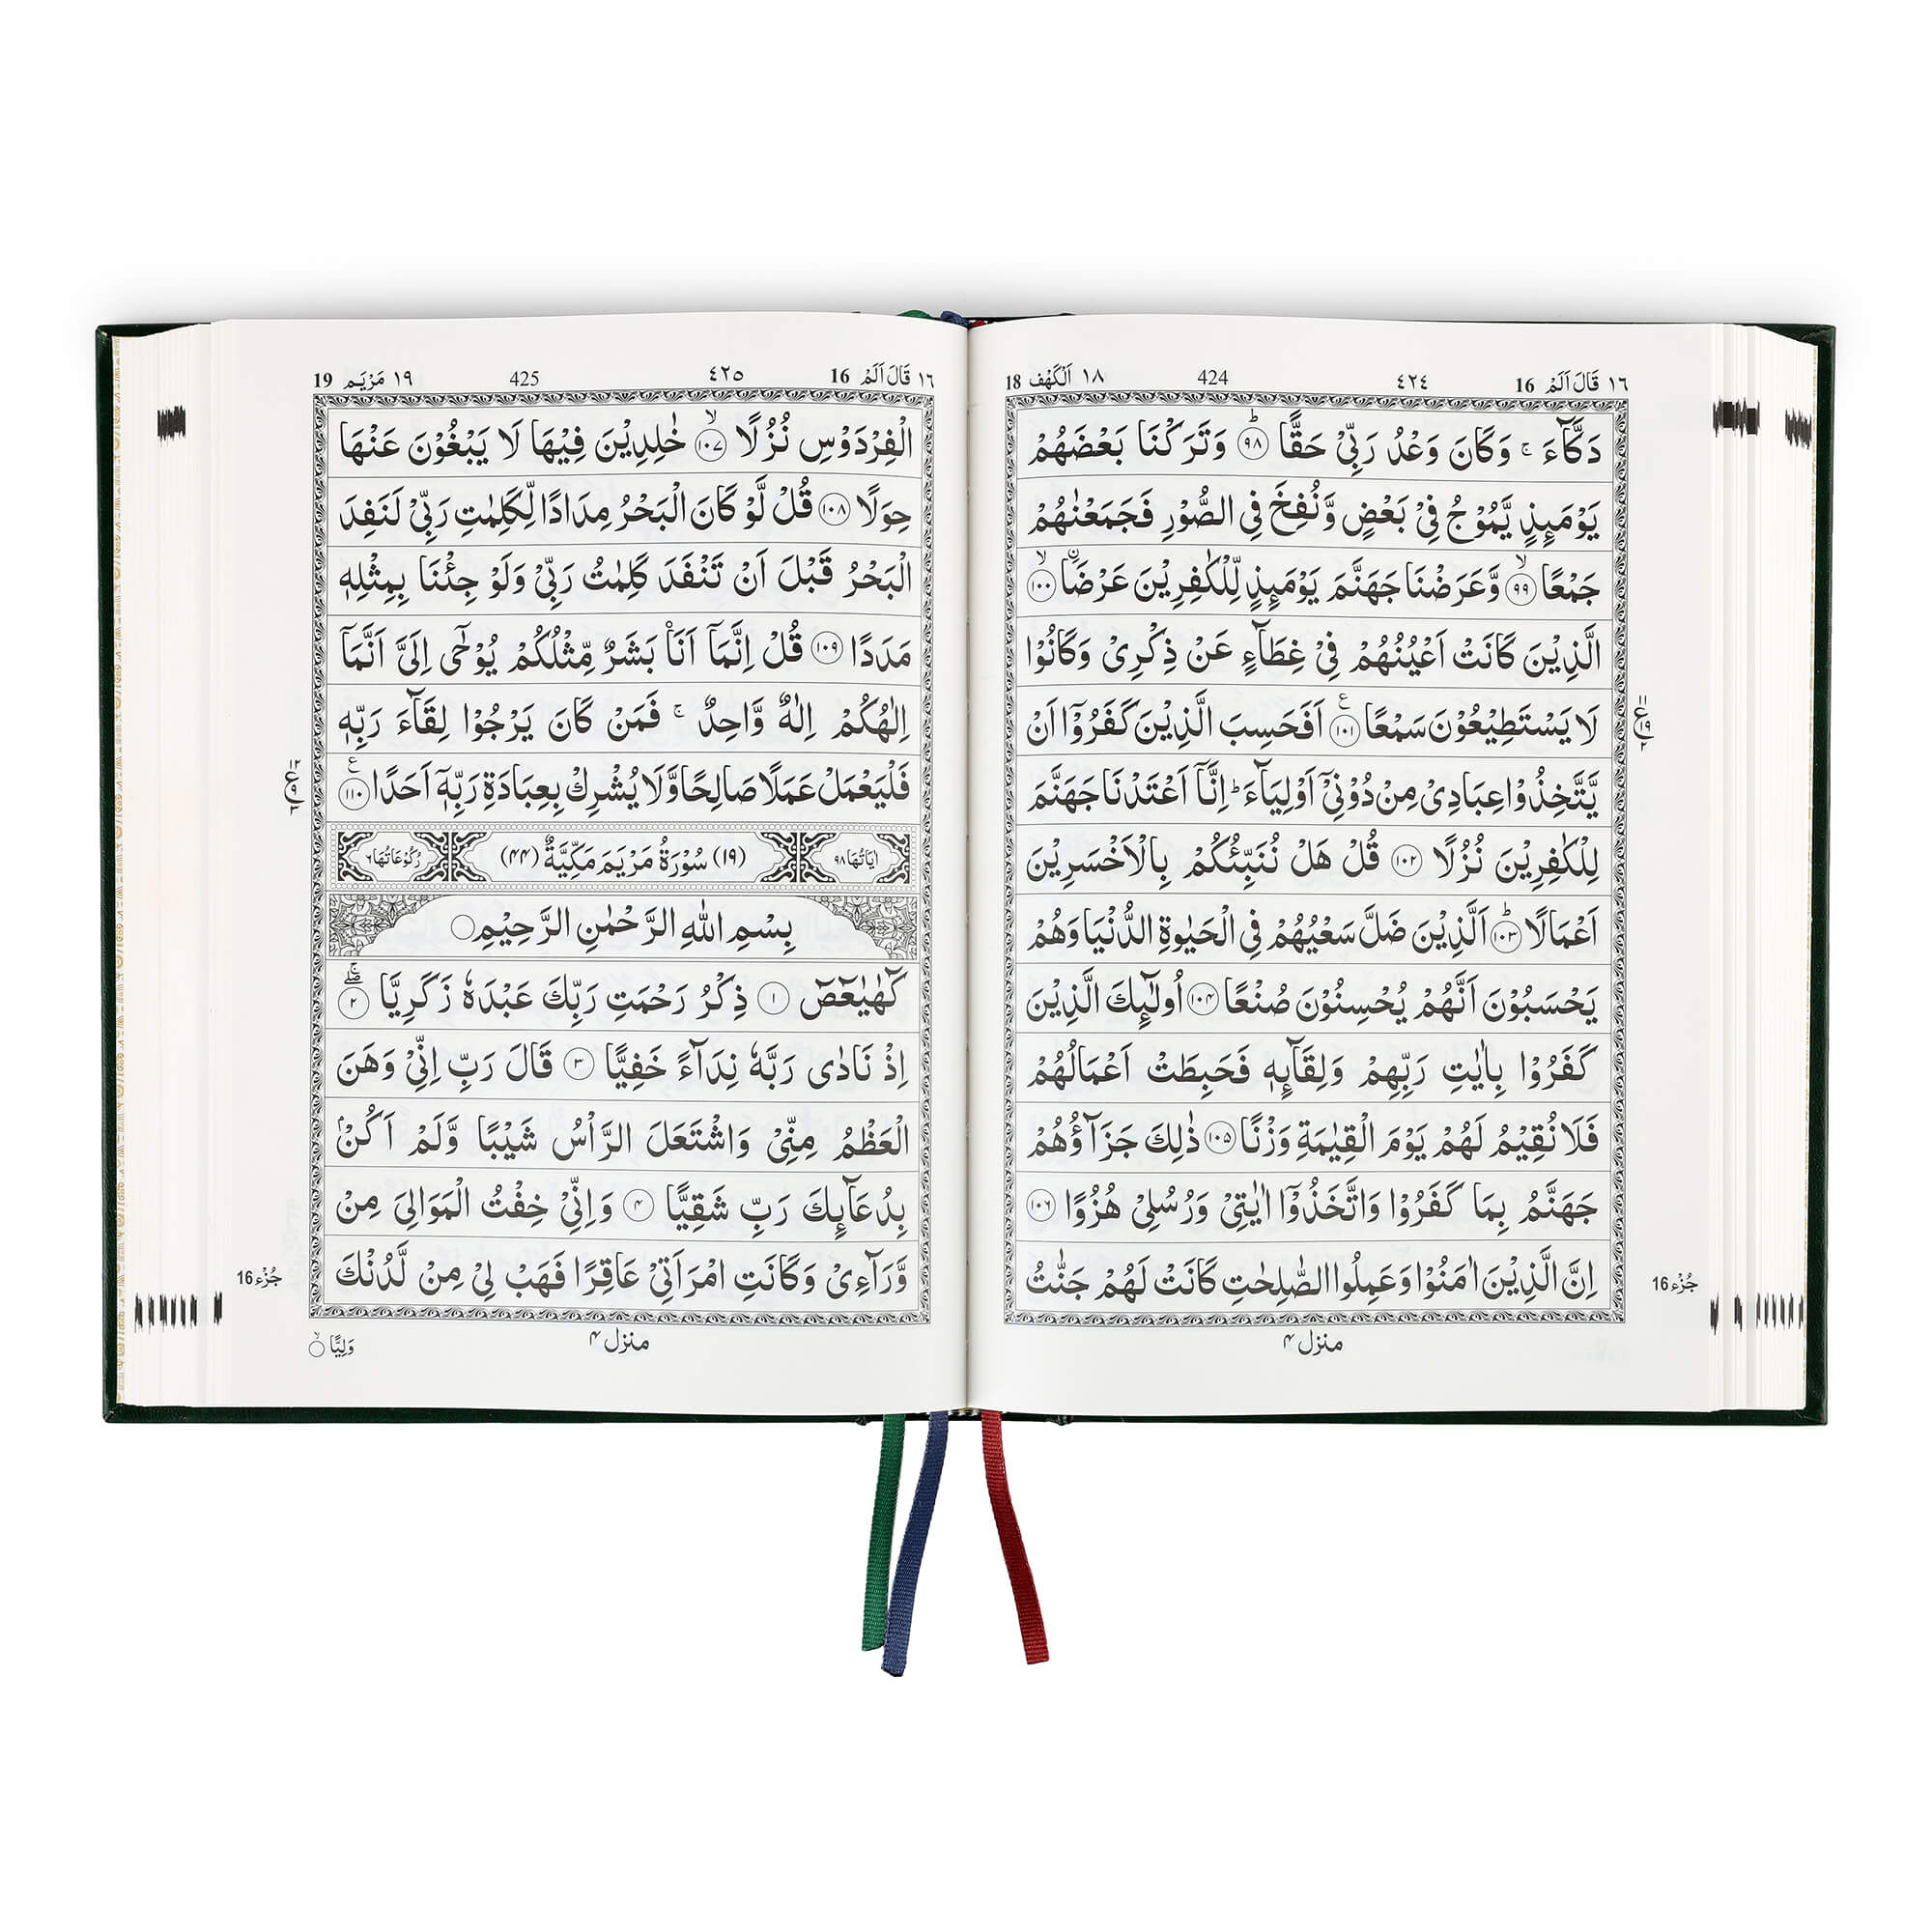 ١٦ قَالَ اَلَمْ 16 ٤٢٤ 424 ١٨ اَلْكَهْف 18
دَكَّآءَ ۚ وَكَانَ وَعْدُ رَبِّيْ حَقًّا ؕ ﴿۹۸﴾ وَتَرَكْنَا بَعْضَهُمْ
يَوْمَئِذٍ يَّمُوْجُ فِيْ بَعْضٍ وَّنُفِخَ فِى الصُّوْرِ فَجَمَعْنٰهُمْ
جَمْعًا ۙ ﴿۹۹﴾ وَّعَرَضْنَا جَهَنَّمَ يَوْمَئِذٍ لِّلْكٰفِرِيْنَ عَرْضَاۨ ۙ ﴿۱۰۰﴾
الَّذِيْنَ كَانَتْ اَعْيُنُهُمْ فِيْ غِطَآءٍ عَنْ ذِكْرِيْ وَكَانُوْا
لَا يَسْتَطِيْعُوْنَ سَمْعًا ﴿۱۰۱﴾ اَفَحَسِبَ الَّذِيْنَ كَفَرُوْٓا اَنْ
يَّتَّخِذُوْا عِبَادِيْ مِنْ دُوْنِيْٓ اَوْلِيَآءَ ؕ اِنَّآ اَعْتَدْنَا جَهَنَّمَ
لِلْكٰفِرِيْنَ نُزُلًا ﴿۱۰۲﴾ قُلْ هَلْ نُنَبِّئُكُمْ بِالْاَخْسَرِيْنَ
اَعْمَالًا ؕ ﴿۱۰۳﴾ اَلَّذِيْنَ ضَلَّ سَعْيُهُمْ فِى الْحَيٰوةِ الدُّنْيَا وَهُمْ
يَحْسَبُوْنَ اَنَّهُمْ يُحْسِنُوْنَ صُنْعًا ﴿۱۰۴﴾ اُولٰٓئِكَ الَّذِيْنَ
كَفَرُوْا بِاٰيٰتِ رَبِّهِمْ وَلِقَآئِهٖ فَحَبِطَتْ اَعْمَالُهُمْ
فَلَا نُقِيْمُ لَهُمْ يَوْمَ الْقِيٰمَةِ وَزْنًا ﴿۱۰۵﴾ ذٰلِكَ جَزَآؤُهُمْ
جَهَنَّمُ بِمَا كَفَرُوْا وَاتَّخَذُوْٓا اٰيٰتِيْ وَرُسُلِيْ هُزُوًا ﴿۱۰۶﴾
اِنَّ الَّذِيْنَ اٰمَنُوْا وَعَمِلُوا الصّٰلِحٰتِ كَانَتْ لَهُمْ جَنّٰتُ
جُزْء 16
منزل ۴
١٦ قَالَ اَلَمْ 16 ٤٢٥ 425 ١٩ مَرْيَم 19
الْفِرْدَوْسِ نُزُلًا ۙ ﴿۱۰۷﴾ خٰلِدِيْنَ فِيْهَا لَا يَبْغُوْنَ عَنْهَا
حِوَلًا ﴿۱۰۸﴾ قُلْ لَّوْ كَانَ الْبَحْرُ مِدَادًا لِّكَلِمٰتِ رَبِّيْ لَنَفِدَ
الْبَحْرُ قَبْلَ اَنْ تَنْفَدَ كَلِمٰتُ رَبِّيْ وَلَوْ جِئْنَا بِمِثْلِهٖ
مَدَدًا ﴿۱۰۹﴾ قُلْ اِنَّمَآ اَنَا۠ بَشَرٌ مِّثْلُكُمْ يُوْحٰٓى اِلَيَّ اَنَّمَآ
اِلٰهُكُمْ اِلٰهٌ وَّاحِدٌ ۚ فَمَنْ كَانَ يَرْجُوْا لِقَآءَ رَبِّهٖ
فَلْيَعْمَلْ عَمَلًا صَالِحًا وَّلَا يُشْرِكْ بِعِبَادَةِ رَبِّهٖٓ اَحَدًا ﴿۱۱۰﴾
اٰيَاتُهَا ٩٨ (۱۹) سُوْرَةُ مَرْيَمَ مَكِّيَّةٌ (۴۴) رُكُوْعَاتُهَا ٦
بِسْمِ اللّٰهِ الرَّحْمٰنِ الرَّحِيْمِ
كٓهٰيٰعٓصٓ ﴿۱﴾ ذِكْرُ رَحْمَتِ رَبِّكَ عَبْدَهٗ زَكَرِيَّا ﴿۲﴾
اِذْ نَادٰى رَبَّهٗ نِدَآءً خَفِيًّا ﴿۳﴾ قَالَ رَبِّ اِنِّيْ وَهَنَ
الْعَظْمُ مِنِّيْ وَاشْتَعَلَ الرَّاْسُ شَيْبًا وَّلَمْ اَكُنْۢ
بِدُعَآئِكَ رَبِّ شَقِيًّا ﴿۴﴾ وَاِنِّيْ خِفْتُ الْمَوَالِيَ مِنْ
وَّرَآءِيْ وَكَانَتِ امْرَاَتِيْ عَاقِرًا فَهَبْ لِيْ مِنْ لَّدُنْكَ
جُزْء 16
منزل ۴
وَلِيًّا ۙ